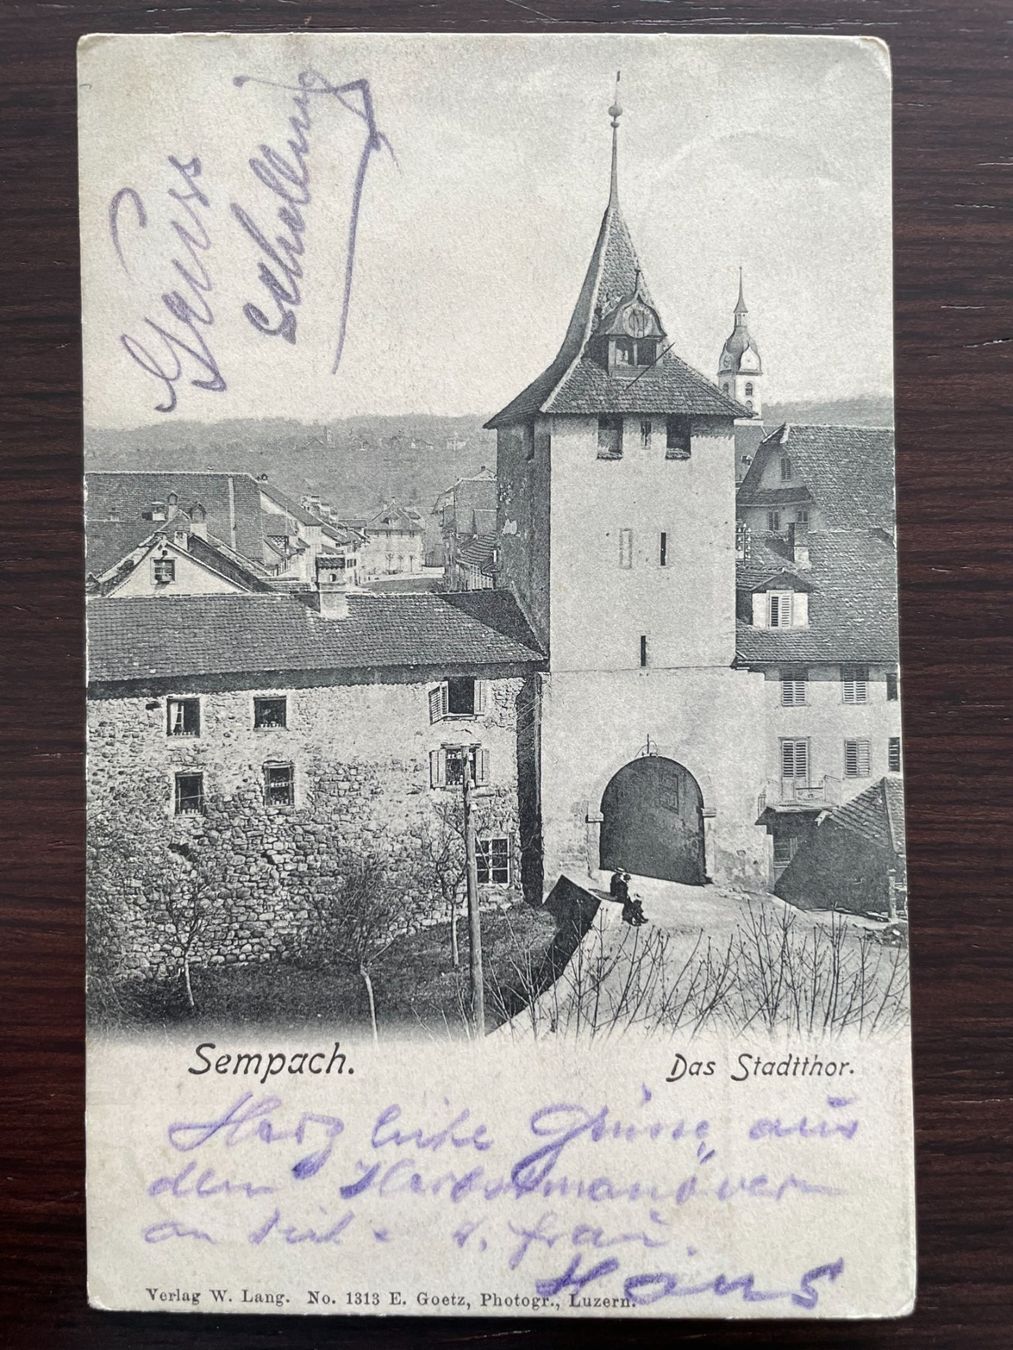 Gruss
Schilling
Sempach.
Das Stadtthor.
Herzliche Grüsse aus
dem Herbstmanöver
an Dich u. d. Frau.
Hans
Verlag W. Lang. No. 1313 E. Goetz, Photogr., Luzern.